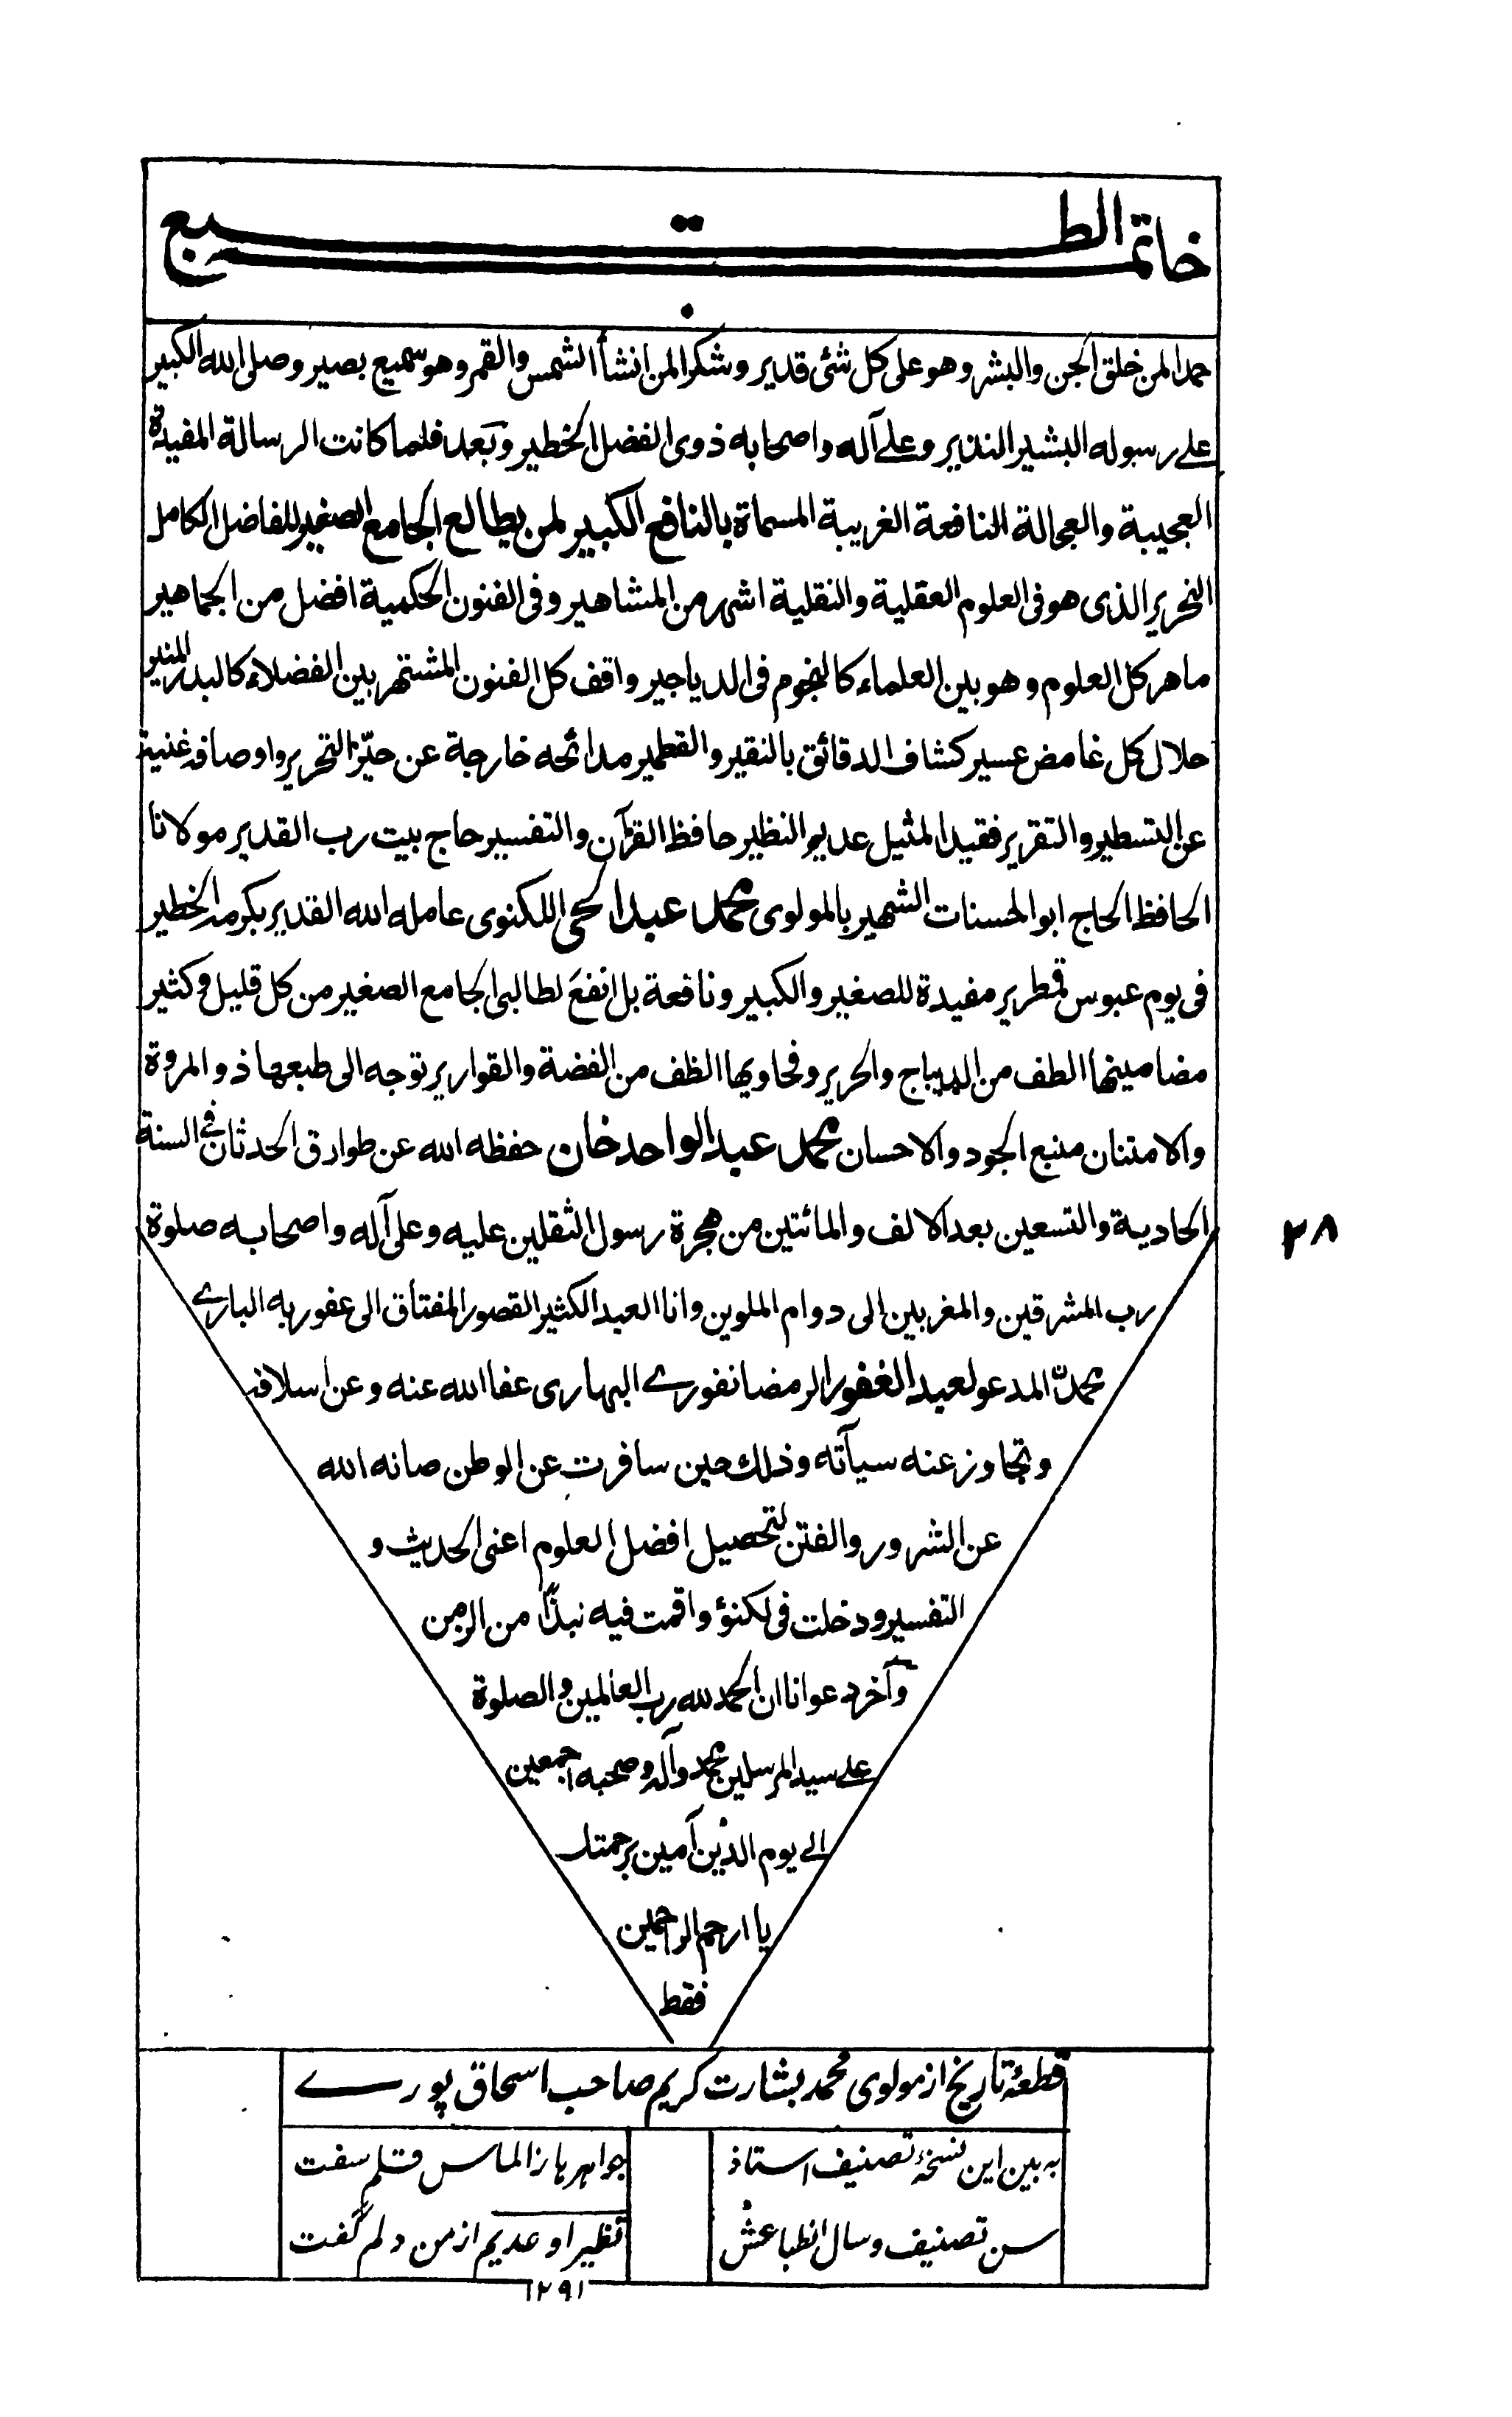 خاتمة الطبع
حمدا لمن خلق الجن والبشر وهو على كل شئ قدير وشكرا لمن انشأ الشمس والقمر وهو سميع بصير وصلى الله الكبير
على رسوله البشير النذير وعلى آله واصحابه ذوى الفضل الخطير وبعد فلما كانت الرسالة المفيدة
العجيبة والعجالة النافعة الغريبة المسماة بالنافع الكبير لمن يطالع الجامع الصغير للفاضل الكامل
النحرير الذى هو فى العلوم العقلية والنقلية اشهر من المشاهير وفى الفنون الحكمية افضل من الجماهير
ماهر كل العلوم وهو بين العلماء كالنجوم فى الدياجير واقف كل الفنون المشتهر بين الفضلاء كالبدر المنير
حلال كل غامض عسير كشاف الدقائق بالنقير والقطمير مدائحه خارجة عن حيّز التحرير واوصافه غنية
عن التسطير والتقرير فقيد المثيل عديم النظير حافظ القرآن والتفسير حاج بيت رب القدير مولانا
الحافظ الحاج ابو الحسنات الشهير بالمولوى محمد عبد الحى اللكنوى عامله الله القدير بكرمه الخطير
فى يوم عبوس قمطرير مفيدة للصغير والكبير ونافعة بل انفع لطالبى الجامع الصغير من كل قليل وكثير
مضامينها الطف من الديباج والحرير وفحاويها الظف من الفضة والقوارير توجه الى طبعها ذو المروة
والامتنان منبع الجود والاحسان محمد عبد الواحد خان حفظه الله عن طوارق الحدثان فى السنة
الحادية والتسعين بعد الالف والمائتين من هجرة رسول الثقلين عليه وعلى آله واصحابه صلوة
رب المشرقين والمغربين الى دوام الملوين وانا العبد الكثير القصور المفتاق الى عفو ربه البارے
محمدن المدعو لعبد الغفور الرمضانفورے البهارى عفا الله عنه وعن اسلافه
وتجاوز عنه سيآته وذلك حين سافرت عن الوطن صانه الله
عن الشرور والفتن لتحصيل افضل العلوم اعنى الحديث و
التفسير ودخلت فى لكنؤ واقمت فيه نبذًا من الزمن
وآخر دعوانا ان الحمد لله رب العالمين والصلوة
على سيد المرسلين محمد وآله وصحبه اجمعين
الى يوم الدين آمين برحمتك
يا ارحم الراحمين
فقط
٢٨
قطعۂ تاریخ از مولوی محمد بشارت کریم صاحب اسحاق پورے
به بین این نسخۂ تصنیف استاذ
جواهرها ز الماس قلم سفت
سن تصنیف و سال انطباعش
نظیر او عدیم از من دلم گفت
١٢٩١